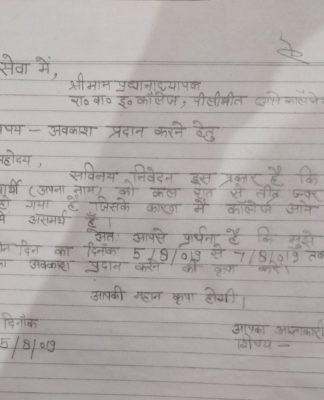 सेवा में,
श्रीमान प्रधानाध्यापक
रा० बा० इ० कॉलेज, पीलीभीत
षय - अवकाश प्रदान करने हेतु
महोदय,
सविनय निवेदन इस प्रकार है कि
ार्थी (अपना नाम) को कल रात से तीव्र ज्वर
हो गया है जिसके कारण मैं कॉलेज आने
में असमर्थ हूँ।
अतः आपसे प्रार्थना है कि मुझे
न दिन का दिनांक 5/8/019 से 7/8/019 तक
का अवकाश प्रदान करने की कृपा करें।
आपकी महान कृपा होगी।
दिनाँक
आपका आज्ञाकारी
5/8/019
शिष्य -